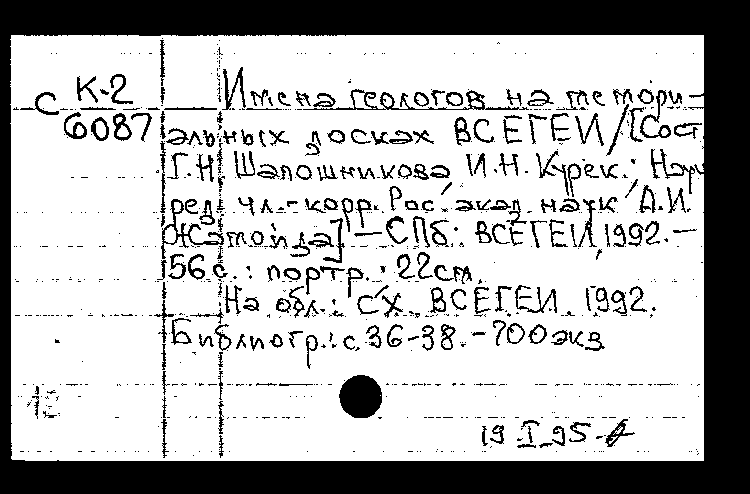 С К-2
6087
Имена геологов на мемори-
альных досках ВСЕГЕИ/[Сост.
Г.Н. Шапошникова И.Н. Курек.; Науч
ред. чл.-корр. Рос. акад. наук А.И.
Жамойда] – СПб: ВСЕГЕИ, 1992. –
56 с. : портр. ; 22см.
На обл.: ВСЕГЕИ. 1992.
Библиогр.: с. 36-38. – 700 экз
19 I 95